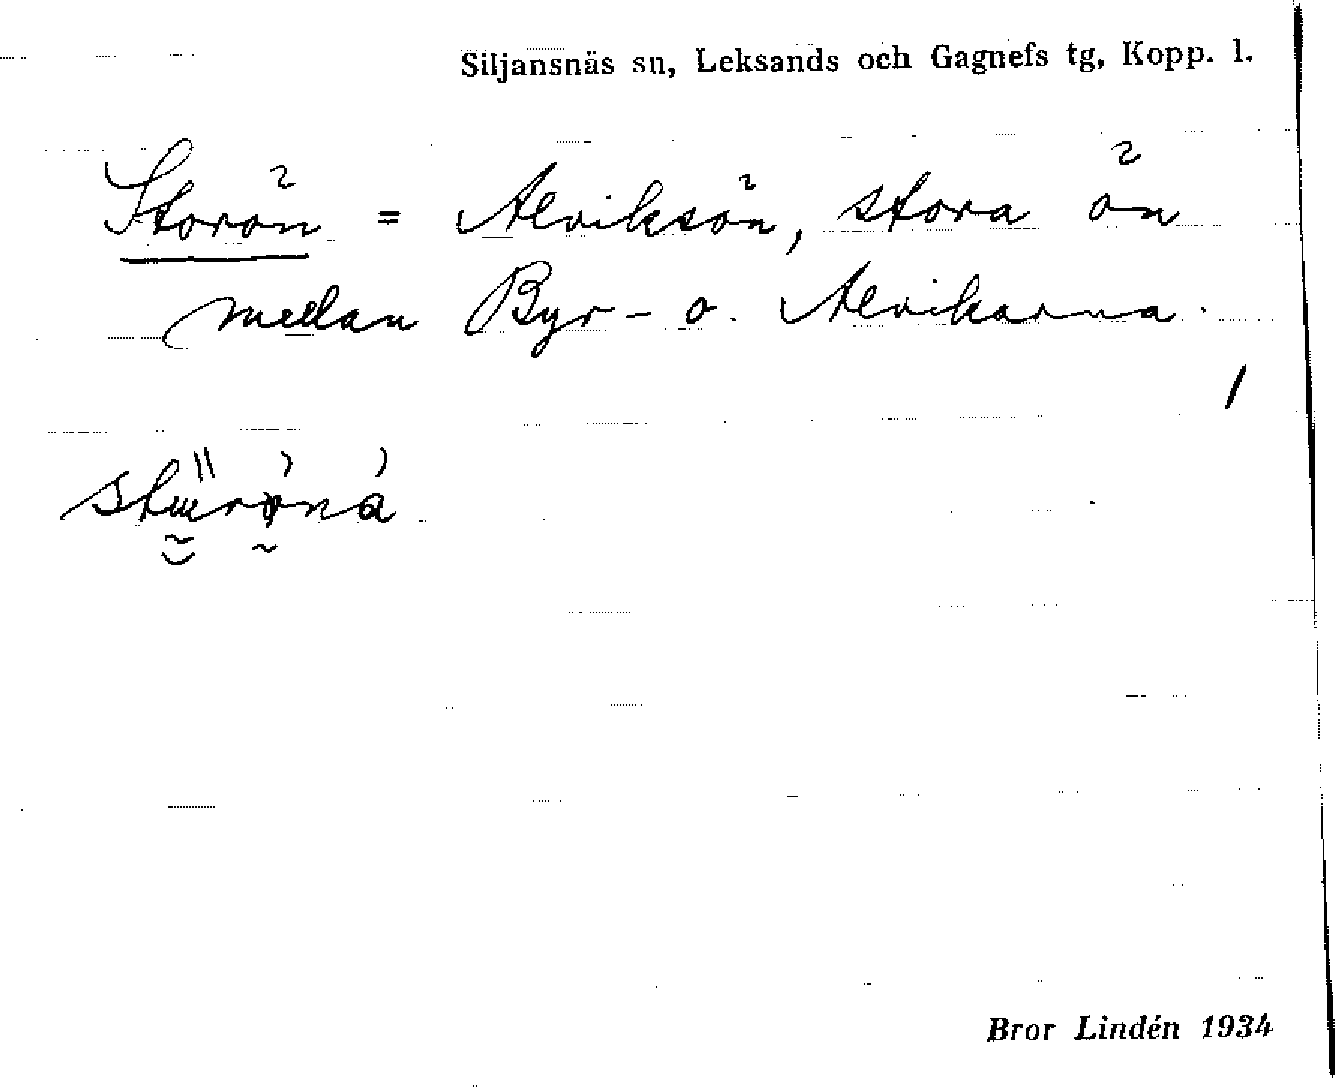 Siljansnäs sn, Leksands och Gagnefs tg, Kopp. l.
Storön = Alviksön, stora ön
mellan Byr- o. Alvikarna.
Bror Lindén 1934